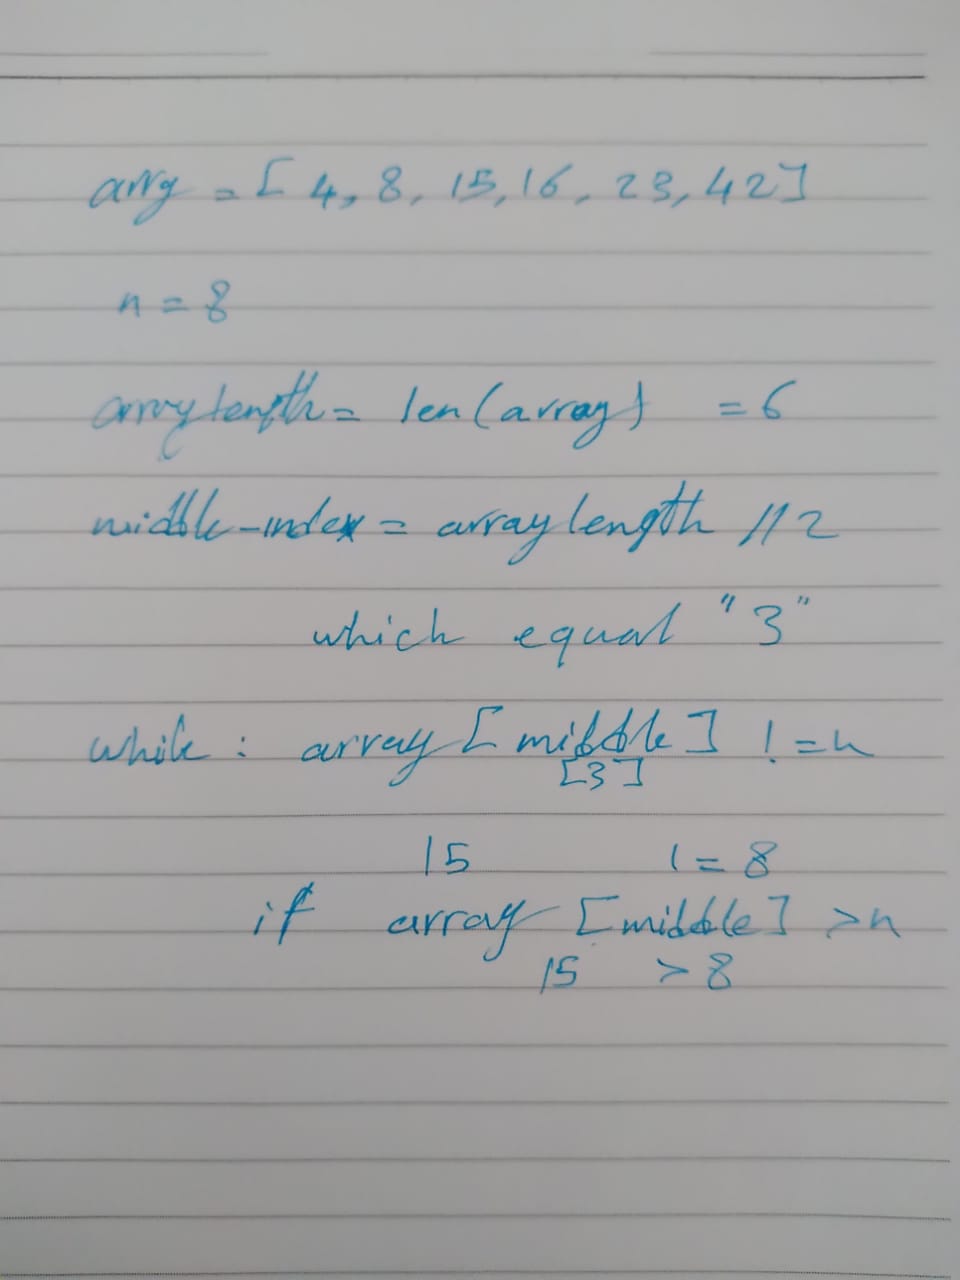 array = [ 4, 8, 15, 16, 23, 42]
n = 8
arraylength = len (array) = 6
middle-index = arraylength // 2
which equal "3"
while : array [ middle ] != n
[3]
15 != 8
if array [middle] > n
15 > 8